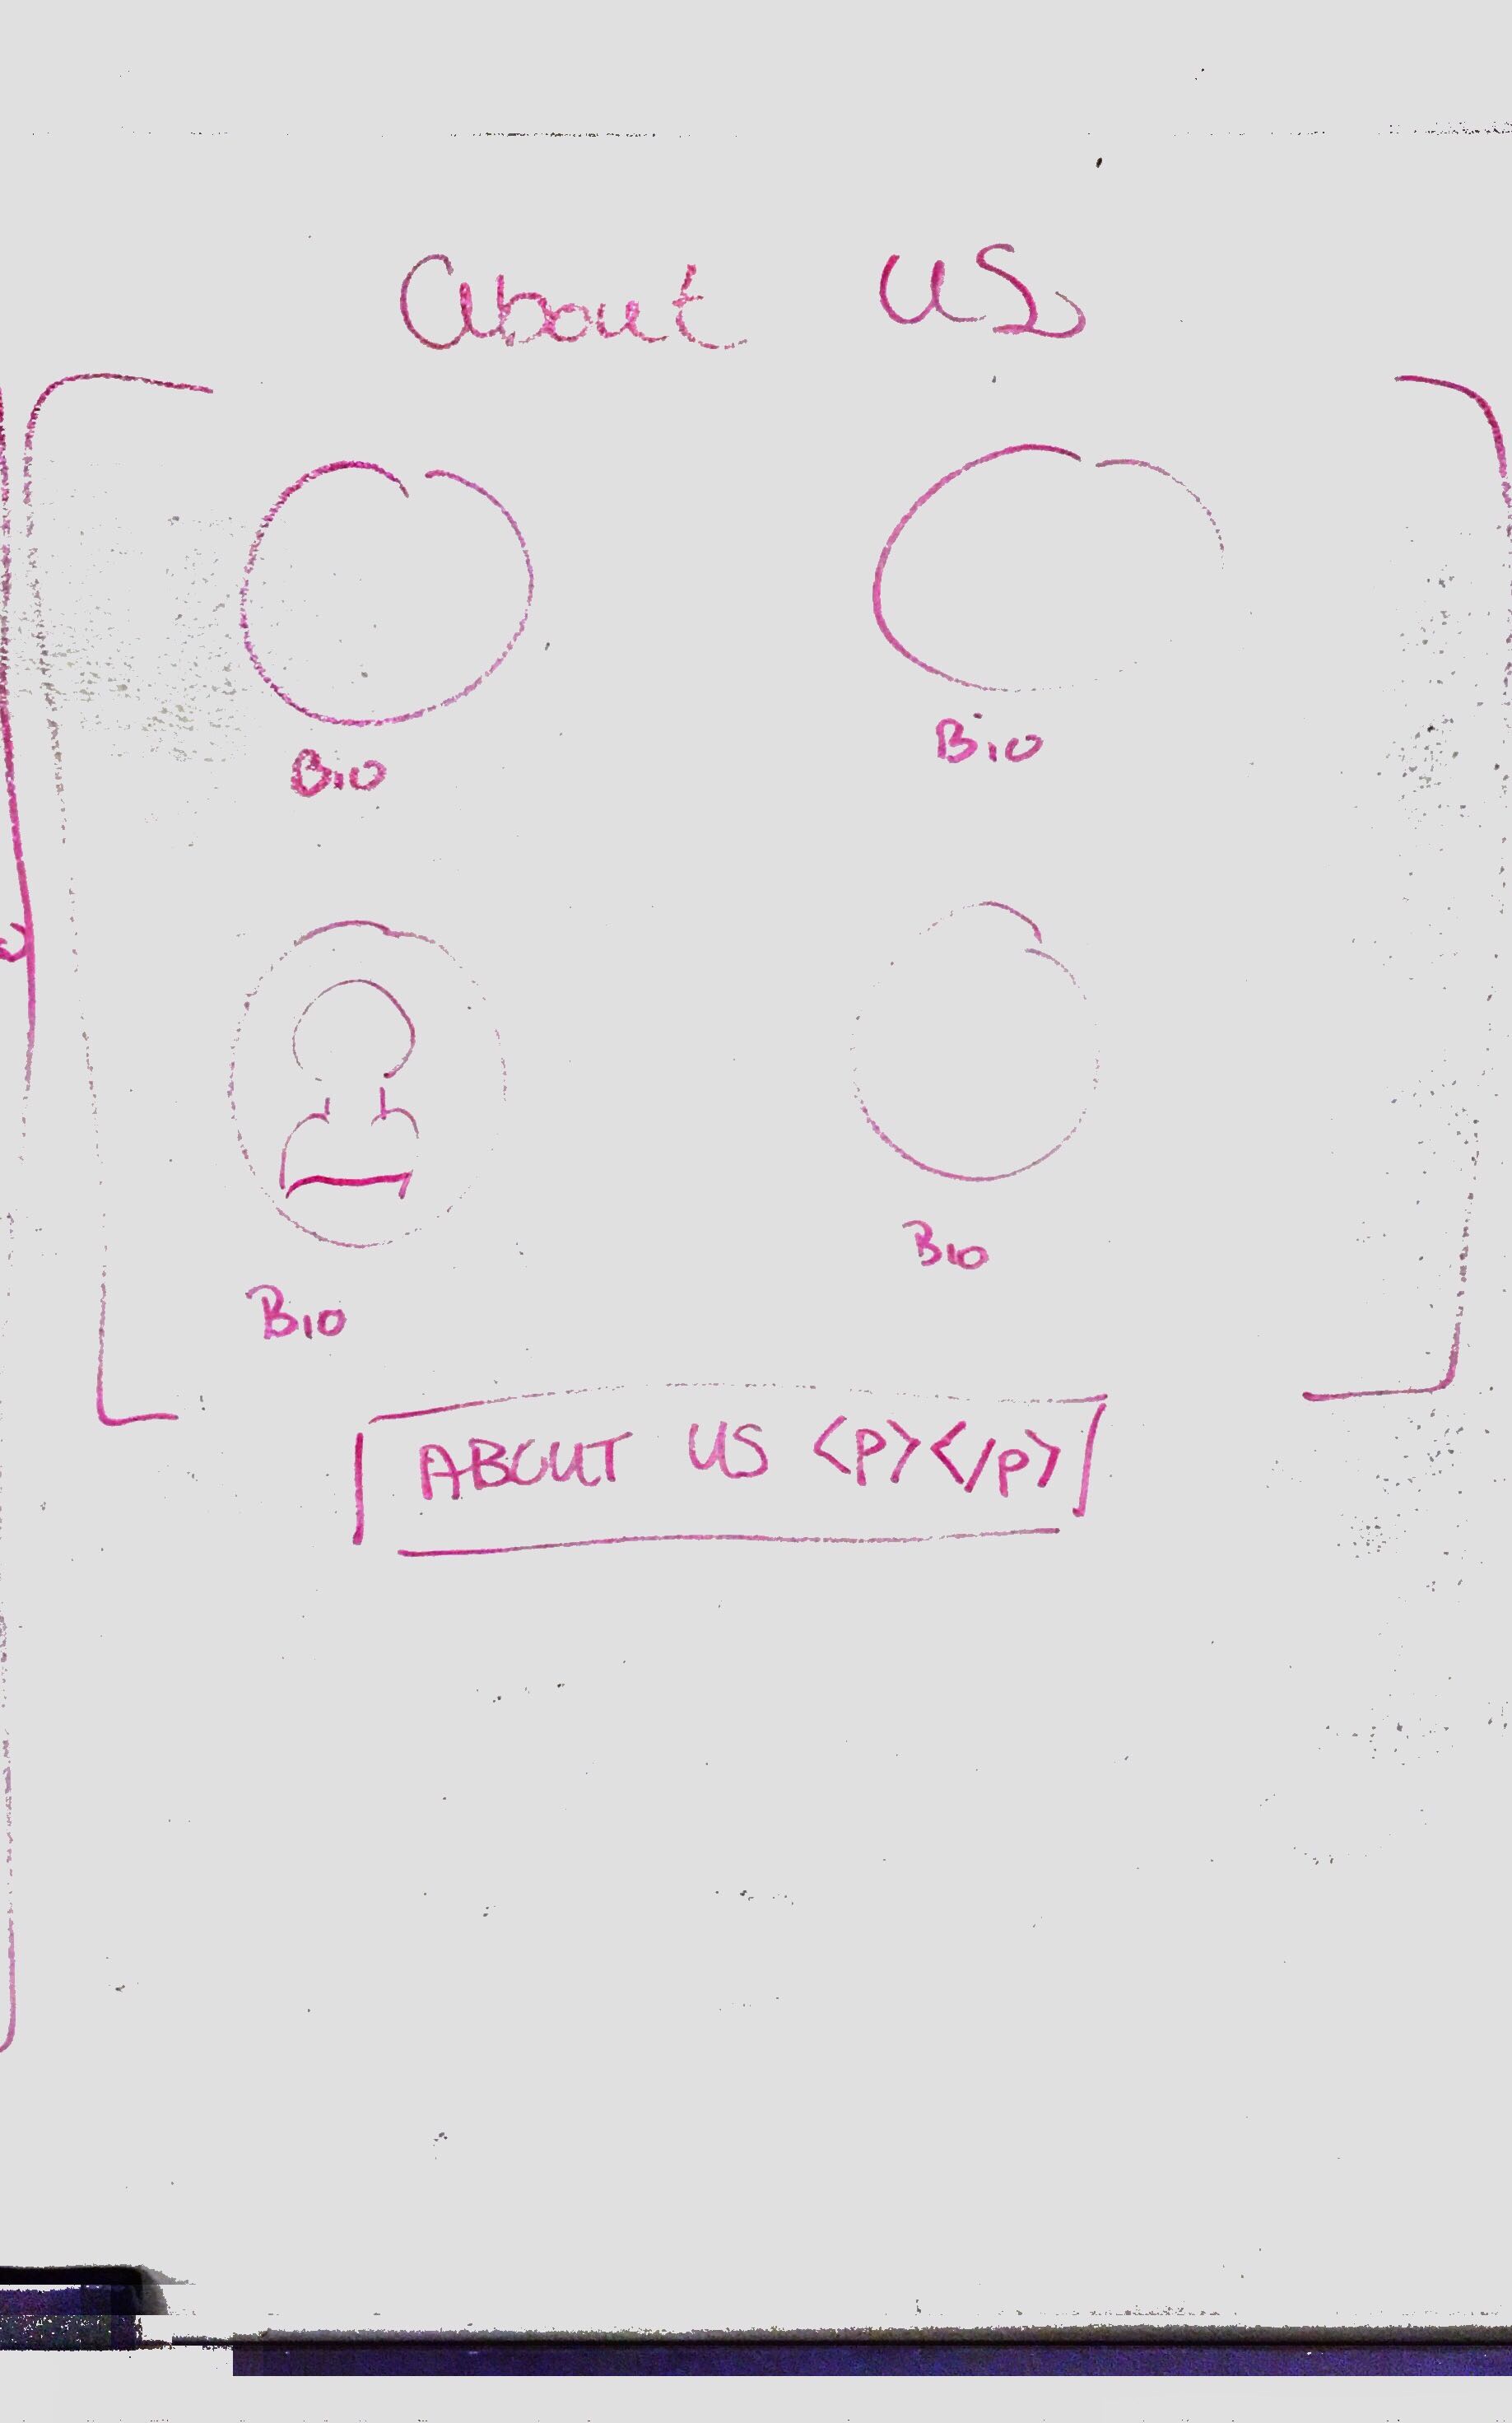 About US
Bio
Bio
Bio
Bio
ABOUT US <p></p>